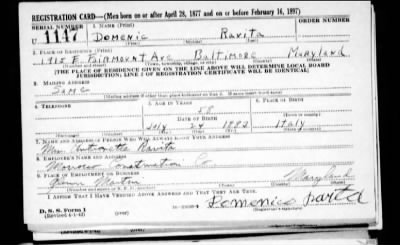 REGISTRATION CARD—(Men born on or after April 28, 1877 and on or before February 16, 1897)
SERIAL NUMBER 1. NAME (Print) ORDER NUMBER
U 1147 Domenic Ravita
2. PLACE OF RESIDENCE (Print)
E. Fairmount Ave Baltimore Maryland
[THE PLACE OF RESIDENCE GIVEN ON THE LINE ABOVE WILL DETERMINE LOCAL BOARD
JURISDICTION; LINE 2 OF REGISTRATION CERTIFICATE WILL BE IDENTICAL]
3. MAILING ADDRESS
Same
4. TELEPHONE 5. AGE IN YEARS 6. PLACE OF BIRTH
58
DATE OF BIRTH
July 24 1883 Italy
7. NAME AND ADDRESS OF PERSON WHO WILL ALWAYS KNOW YOUR ADDRESS
Mrs. Antonette Ravita
8. EMPLOYER'S NAME AND ADDRESS
Construction Co.
9. PLACE OF EMPLOYMENT OR BUSINESS
Glenn Martin Maryland
I AFFIRM THAT I HAVE VERIFIED ABOVE ANSWERS AND THAT THEY ARE TRUE.
D. S. S. Form 1
(Revised 4-1-42) (over) Domenico Ravita